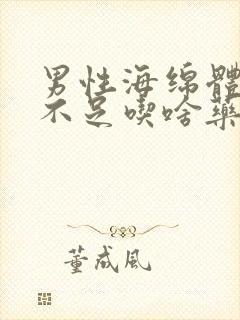 男性海绵體
不足喫啥藥
董成風